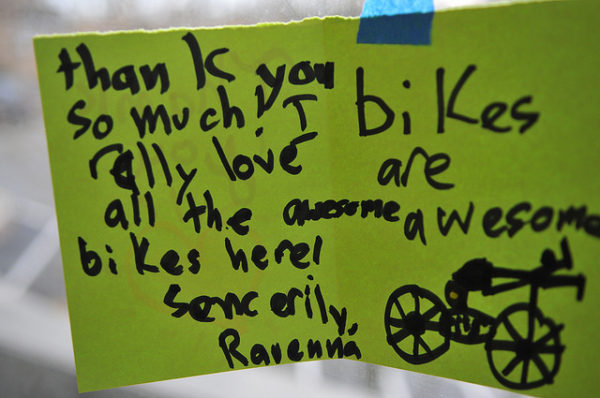 thank you
so much! I
rally love
all the awesome
bikes here!
sencerily,
Ravenna
bikes
are
awesome